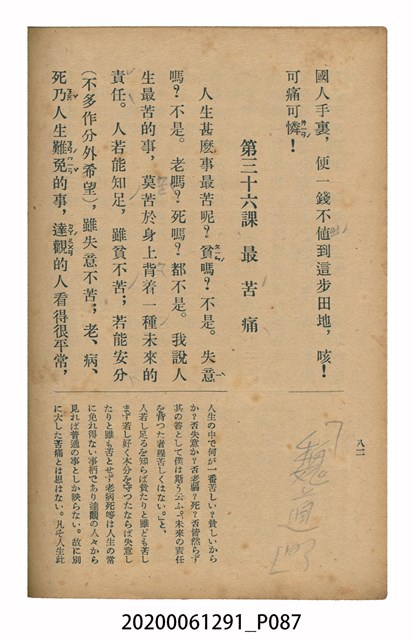 國人手裏，便一錢不値到這步田地，咳！
可痛可憐！
第三十六課　最苦痛
人生甚麽事最苦呢？貧嗎？不是。失意
嗎？不是。老嗎？死嗎？都不是。我說人
生最苦的事，莫苦於身上背着一種未來的
責任。人若能知足，雖貧不苦；若能安分
（不多作分外希望），雖失意不苦；老、病、
死乃人生難免的事，達觀的人看得很平常，
八二
人生の中で何が一番苦しい？貧しいから
か？否失意か？否老弱？死？否皆然らず
其の答として僕は斯う云ふ。「未來の責任
を背つた者程苦しくはない。」と、
人若し足るを知らば貧たりと雖ども苦し
まず若し好く本分を守つたならば失意し
たりと雖も苦とせず老病死等は人生の常
に免れ得ない事柄であり達觀の人々から
見れば普通の事としか映らない。故に別
に大した苦痛とは思はない。凡そ人生此
魏道
20200061291_P087